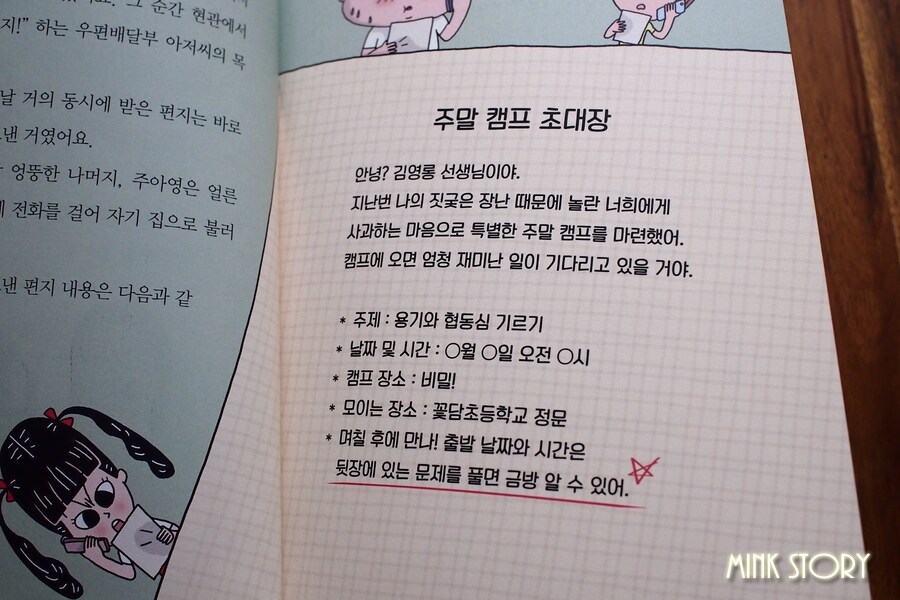 그 순간 현관에서
지!” 하는 우편배달부 아저씨의 목
날 거의 동시에 받은 편지는 바로
낸 거였어요.
엉뚱한 나머지, 주아영은 얼른
전화를 걸어 자기 집으로 불러
낸 편지 내용은 다음과 같
주말 캠프 초대장
안녕? 김영롱 선생님이야.
지난번 나의 짓궂은 장난 때문에 놀란 너희에게
사과하는 마음으로 특별한 주말 캠프를 마련했어.
캠프에 오면 엄청 재미난 일이 기다리고 있을 거야.
* 주제 : 용기와 협동심 기르기
* 날짜 및 시간 : ○월 ○일 오전 ○시
* 캠프 장소 : 비밀!
* 모이는 장소 : 꽃담초등학교 정문
* 며칠 후에 만나! 출발 날짜와 시간은
뒷장에 있는 문제를 풀면 금방 알 수 있어.
MINK STORY